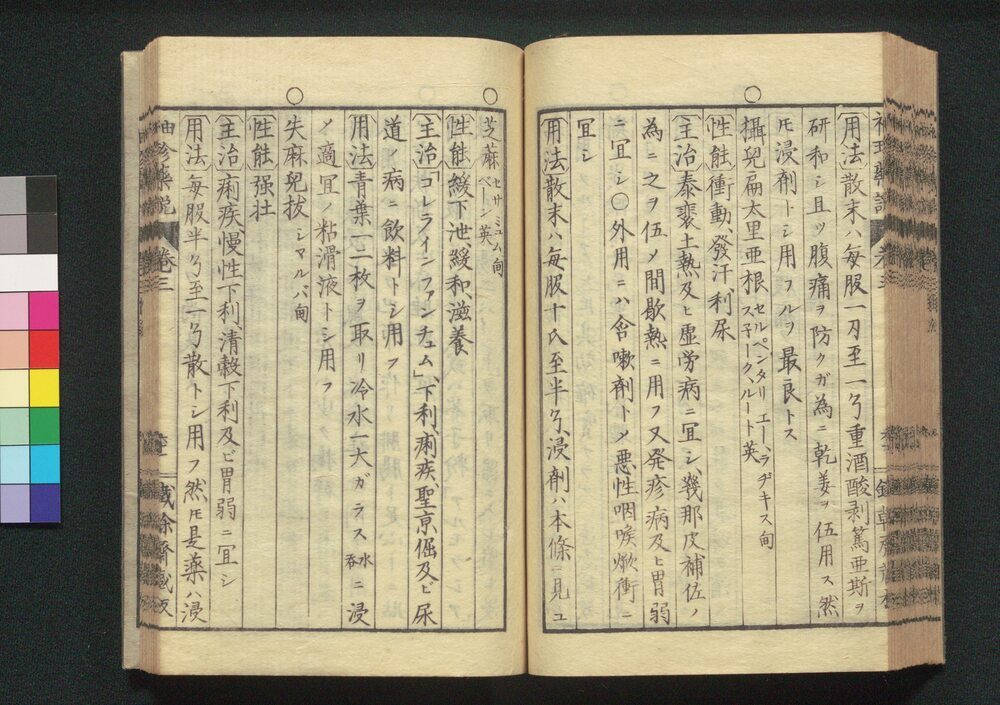 用法散末ハ毎服一刃至一ゟ重酒酸剥篤亜斯ヲ
研和シ且ツ腹痛ヲ防クガ為ニ乾姜ヲ伍用ス然
𪜈浸剤トシ用フルヲ最良トス
攝兒扁太里亜根 セルペンタリエー、ラヂキス甸
スネークルート英
性能 衝動、發汗、利尿
主治 泰裴土熱及ヒ虚労病ニ宜シ、幾那皮補佐ノ
為ニ之ヲ伍メ間歇熱ニ用フ又発疹病及ヒ胃弱
ニ宜シ○外用ニハ含嗽剤トメ悪性咽喉焮衝ニ
宜シ
用法 散末ハ毎服十氏至半ゟ、浸剤ハ本條ニ見ユ
芝蔴 セサミユム甸
ベーン英
性能 緩下泄、緩和、滋養
主治 「コレラインファンチュム」、下利、痢疾、聖京倔及ビ尿
道ノ病ニ飲料トシ用フ
用法 青葉一二枚ヲ取リ冷水一大ガラス 水呑 ニ浸
メ適宜ノ粘滑液トシ用フ
失麻兒拔 シマルバ甸
性能 强壮
主治 痢疾、慢性下利、清穀下利及ビ胃弱ニ宜シ
用法 毎服半ゟ至一ゟ散トシ用フ然𪜈是薬ハ浸
袖珍薬説 巻三